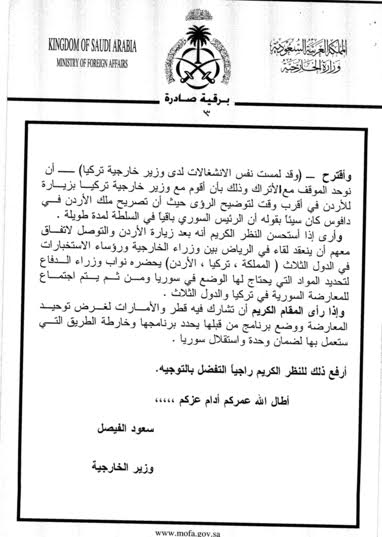 KINGDOM OF SAUDI ARABIA
MINISTRY OF FOREIGN AFFAIRS
المملكة العربية السعودية
وزارة الخارجية
برقية صادرة
٣
وأقترح – (وقد لمست نفس الانشغالات لدى وزير خارجية تركيا) – أن
نوحد الموقف مع الأتراك وذلك بأن أقوم مع وزير خارجية تركيا بزيارة
للأردن في أقرب وقت لتوضيح الرؤى حيث أن تصريح ملك الأردن في
دافوس كان سيئاً بقوله أن الرئيس السوري باقياً في السلطة لمدة طويلة .
وأرى إذا أستحسن النظر الكريم أنه بعد زيارة الأردن والتوصل لاتفاق
معهم أن ينعقد لقاء في الرياض بين وزراء الخارجية ورؤساء الاستخبارات
في الدول الثلاث ( المملكة ، تركيا ، الأردن) يحضره نواب وزراء الدفاع
لتحديد المواد التي يحتاج لها الوضع في سوريا ومن ثم يتم اجتماع
للمعارضة السورية في تركيا والدول الثلاث .
وإذا رأى المقام الكريم أن تشارك فيه قطر والأمارات لغرض توحيد
المعارضة ووضع برنامج من قبلها يحدد برنامجها وخارطة الطريق التي
ستعمل بها لضمان وحدة واستقلال سوريا .
أرفع ذلك للنظر الكريم راجياً التفضل بالتوجيه.
أطال الله عمركم أدام عزكم ،،،،،
سعود الفيصل
وزير الخارجية
www.mofa.gov.sa